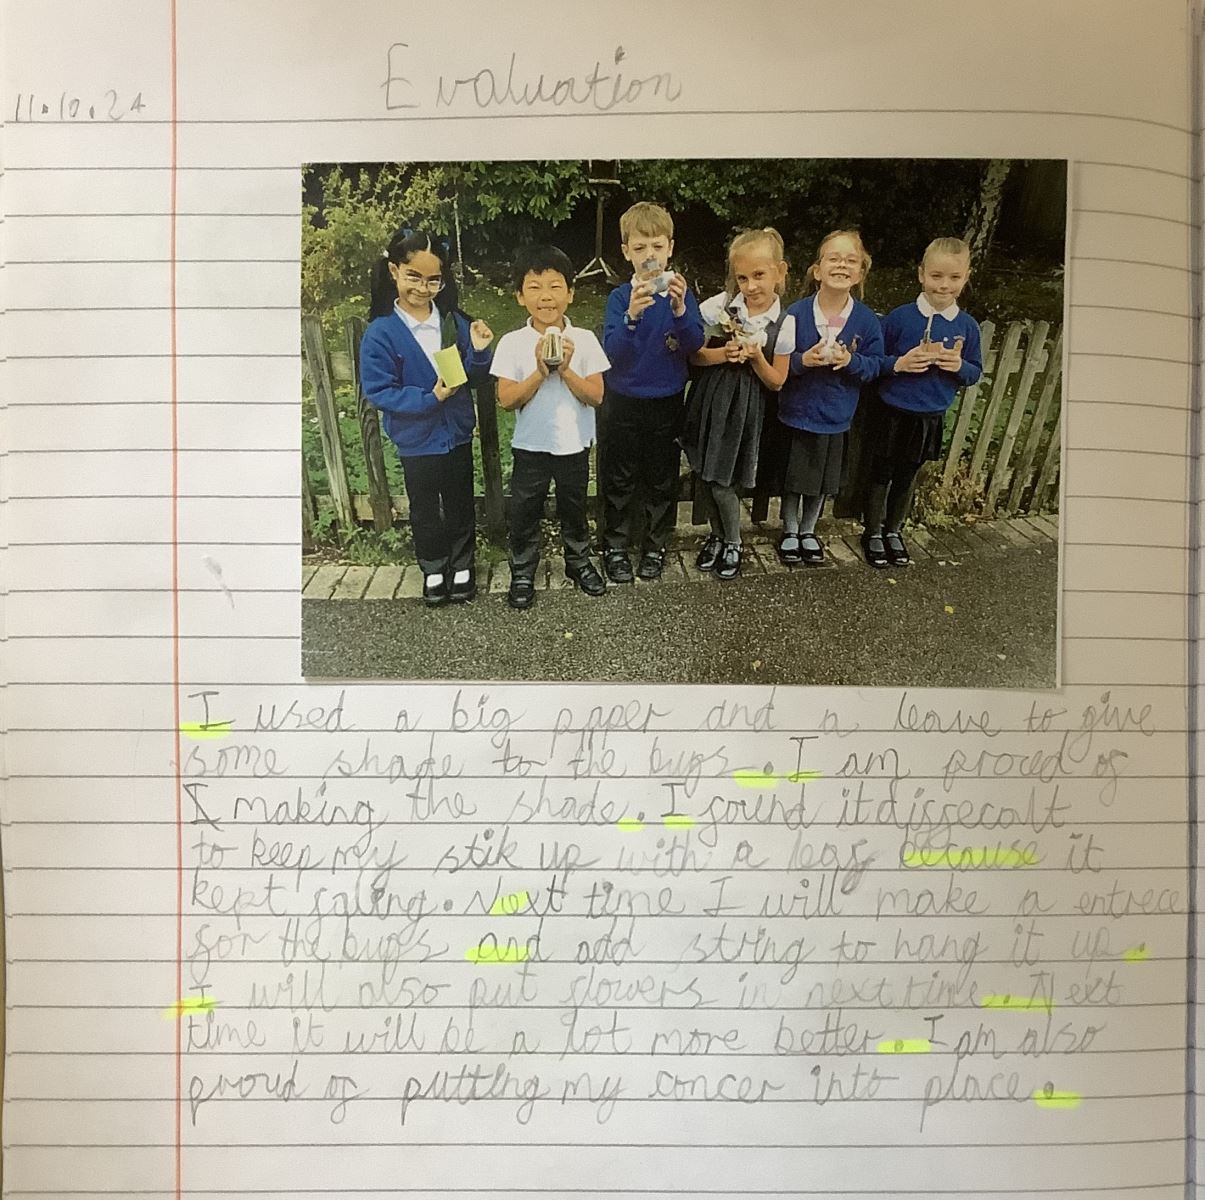 11.10.24
Evaluation
I used a big paper and a leave to give
some shade to the bugs. I am proud of
making the shade. I found it diffecalt
to keep my stik up with a leaf because it
kept faling. Next time I will make a entrece
for the bugs and add string to hang it up.
I will also put flowers in next time. Next
time it will be a lot more better. I am also
proud of putting my concer into place.